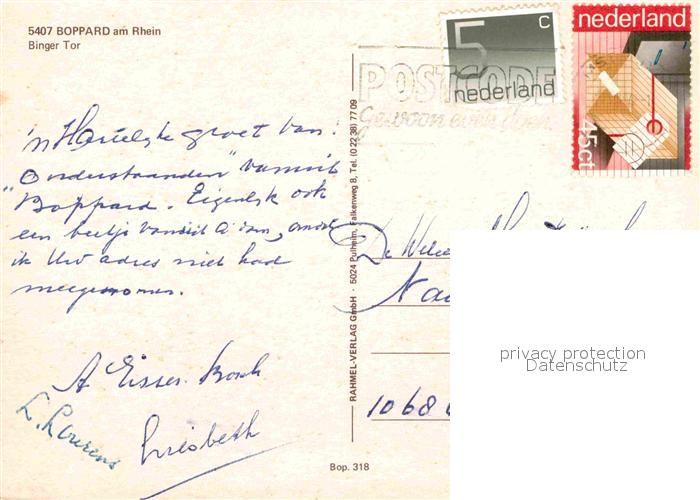 5407 BOPPARD am Rhein
Binger Tor
5 c
nederland
nederland
45ct
POSTCODE
gewoon even doen
'n Hartelijke groet van
"Onderstaanden" vanuit
"Boppard. Eigenlijk ook
een beetje vanuit A'dam, omdat
ik Uw adres niet had
meegenomen.
A Eisses-Bosch
L. Lourens
Liesbeth
RAHMEL-VERLAG GmbH · 5024 Pulheim, Falkenweg 8, Tel. (0 22 38) 77 09
De
1068
Bop. 318
privacy protection
Datenschutz